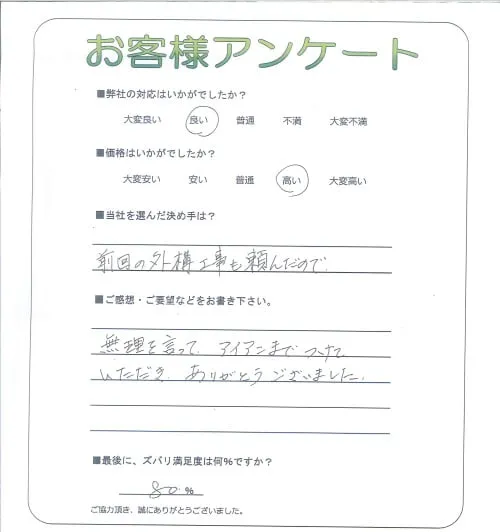 お客様アンケート
■弊社の対応はいかがでしたか？
大変良い 良い 普通 不満 大変不満
■価格はいかがでしたか？
大変安い 安い 普通 高い 大変高い
■当社を選んだ決め手は？
前回の外構工事も頼んだので
■ご感想・ご要望などをお書き下さい。
無理を言って、アイアンまでつけて
いただき、ありがとうございました。
■最後に、ズバリ満足度は何％ですか？
80 %
ご協力頂き、誠にありがとうございました。